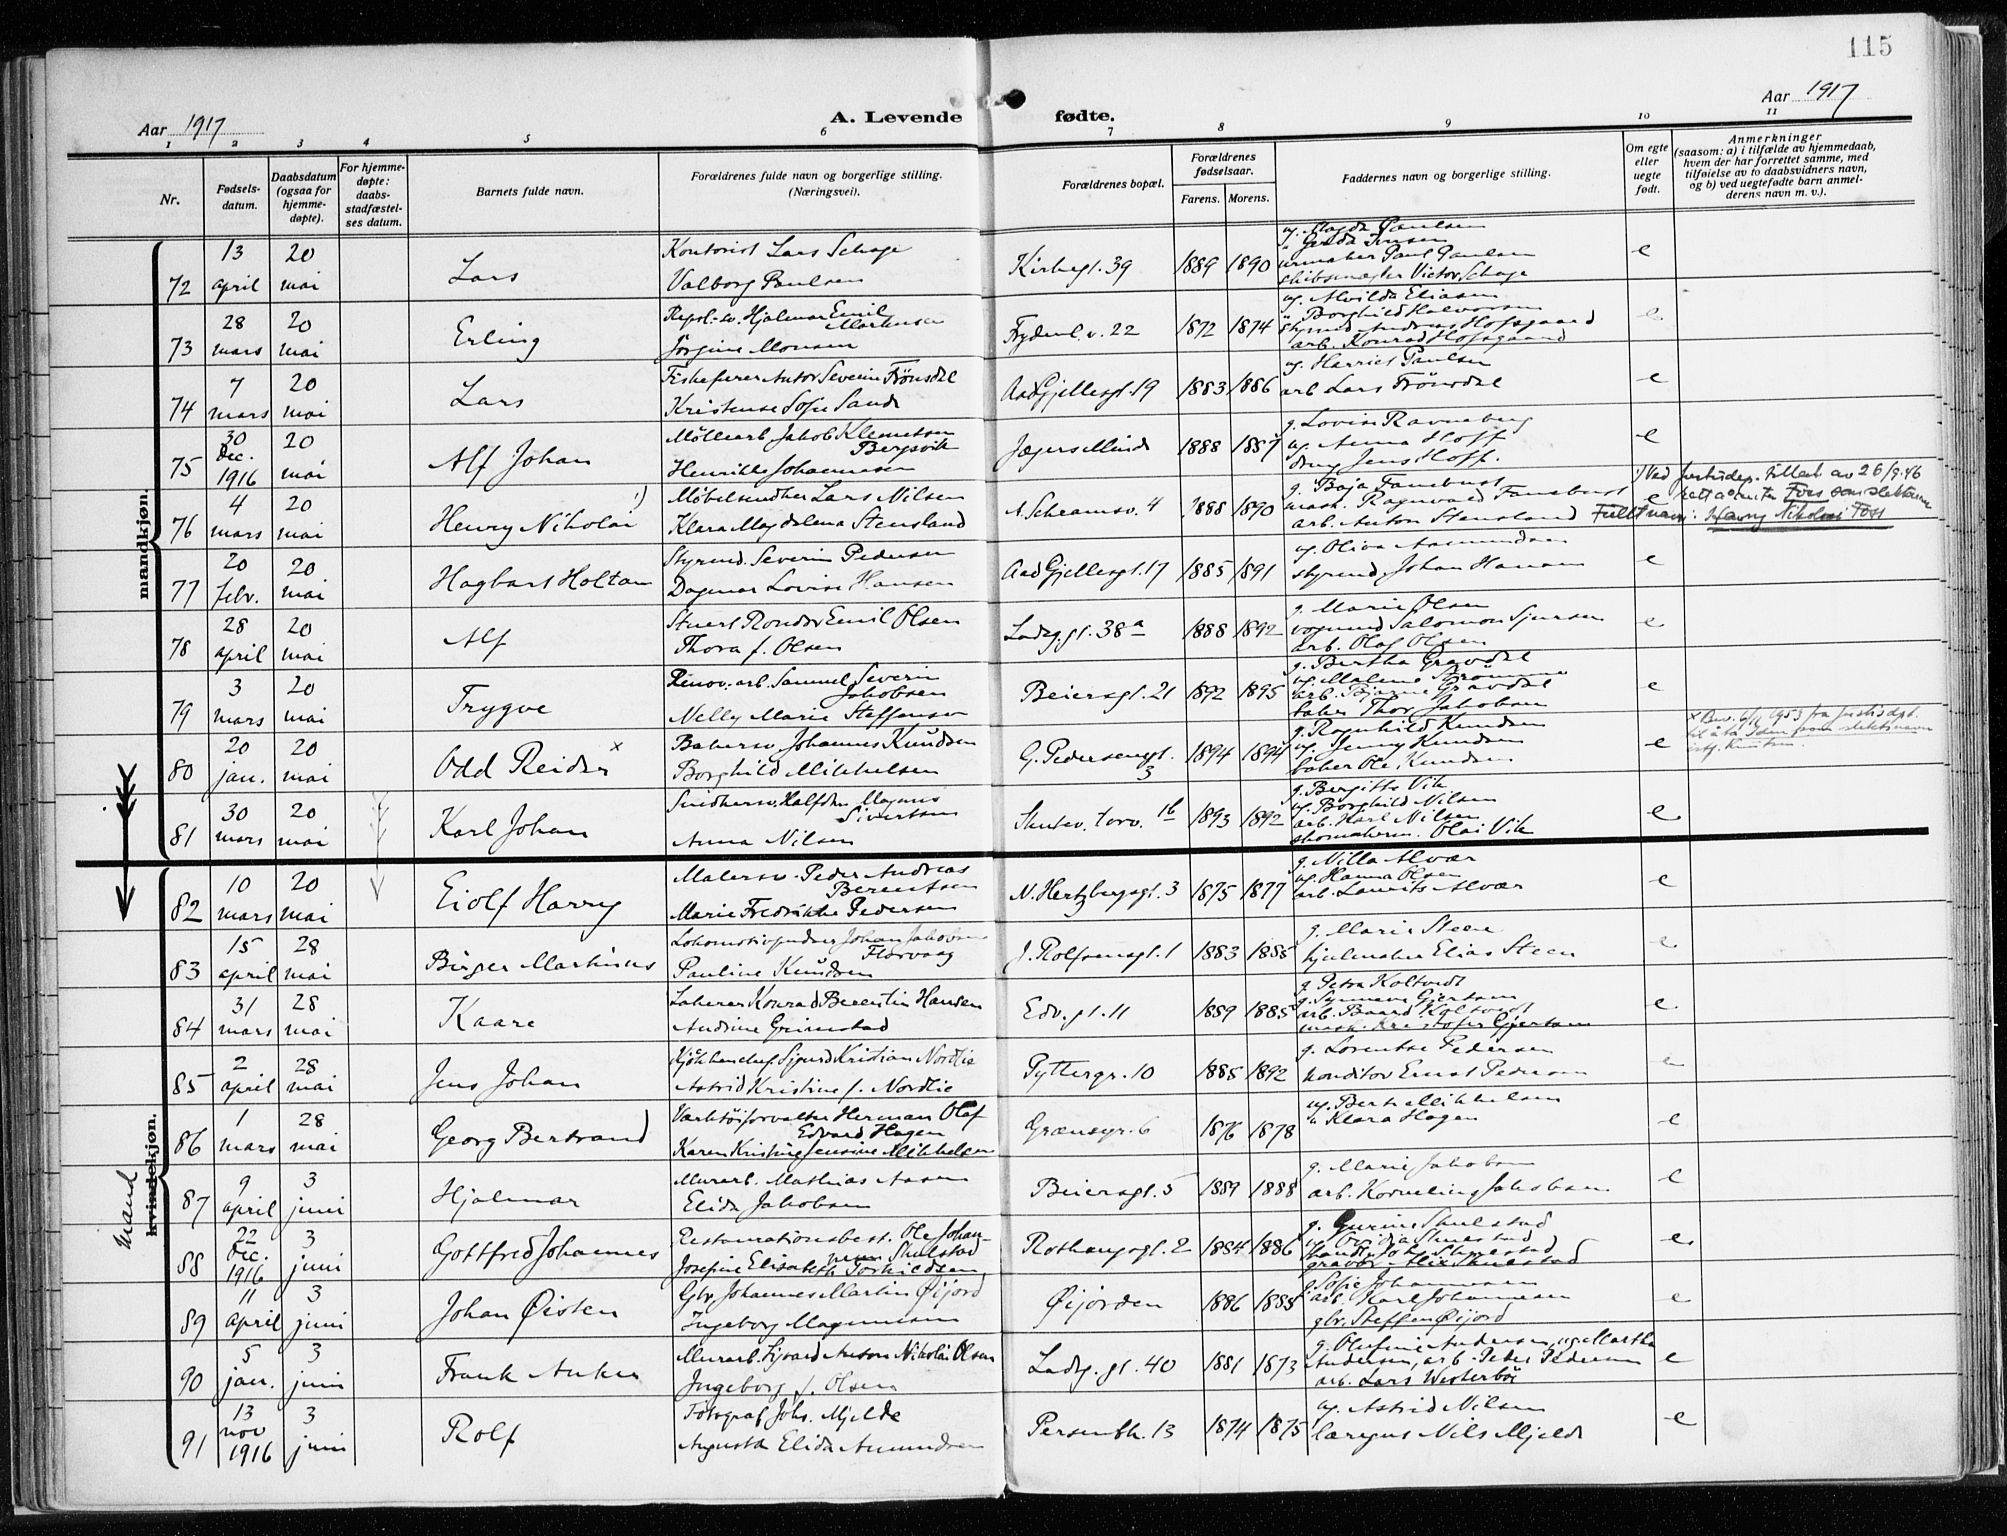 115
Aar 1917
A. Levende fødte.
Aar 1917
1 2 3 4 5 6 7 8 9 10 11
Nr.
Fødsels-
datum.
Daabsdatum
(ogsaa for
hjemme-
døpte).
For hjemme-
døpte:
daabs-
stadfæstel-
ses datum.
Barnets fulde navn.
Forældrenes fulde navn og borgerlige stilling.
(Næringsvei).
Forældrenes bopæl.
Forældrenes
fødselsaar.
Farens. Morens.
Faddernes navn og borgerlige stilling.
Om egte
eller
uegte
født.
Anmerkninger
(saasom: a) i tilfælde av hjemmedaab,
hvem der har forrettet samme, med
tilføielse av to daabsvidners navn,
og b) ved uegtefødte barn anmel-
derens navn m. v.).
mandkjøn.
72 13 april 20 mai Lars
Kontorist Lars Schage
Valborg Paulsen
Kirkegt. 39 1889 1890
ug. Magda Paulsen
urmaker Paul Paulsen
Victor Schage
e
73 28 mars 20 mai Erling
Hjalmar Emil
Martinsen
Jørgine Monsen
Frydenl. v. 22 1872 1874
ug. Alvilda Eliasen
" Borghild Halvorsen
styrmd Andreas Hofsgaard
arb. Konrad Hofsgaard
e
74 7 mars 20 mai Lars
Fiskefører Anton Severin Frönsdal
Kristense Sofie Sande
Aad Gjellesgt. 19 1883 1886
ug. Harriet Paulsen
arb Lars Frönsdal
e
75 30 dec. 1916 20 mai Alf Johan
Möllearb. Jakob Klementsen
Bergsvik
Henrikke Johannesen
Jægers Minde 1888 1887
g. Lovise Ravneberg
ug. Anna Hoff
Jens Hoff.
e
76 4 mars 20 mai Henry Nikolai 1)
Möbelsnedker Lars Nilsen
Klara Magdalena Stensland
A. Schramsv. 4 1888 1890
mask. Ragnvald
arb. Anton Stensland
e
1) Ved justisdep. tillat. av 26/9.46
rett a Foss som slektsnavn
Fullt navn: Henry Nikolai Foss
77 20 febr. 20 mai Hagbart Holtan
Styrmd. Severin Pedersen
Dagmar Lovise Hansen
Aad Gjellesgt. 17 1885 1891
ug. Oliva Aamundsen
styrmd. Johan Hansen
e
78 28 april 20 mai Alf
Stuert Emil Olsen
Thora f. Olsen
Ladeg. gt. 38 a 1888 1892
g. Marie Olsen
vognmd Salomon Sjursen
arb. Olaf Olsen
e
79 3 mars 20 mai Trygve
Renov. arb. Samuel Severin
Jakobsen
Nelly Marie Steffensen
Beiersgt. 21 1892 1895
g. Bertha Gravdal
ug. Malene
arb. Bjarne Gravdal
baker Thor Jakobsen
e
80 20 jan. 20 mai Odd Reidar x
Bakersv. Johannes Knudsen
Borghild Mikkelsen
G. Pedersensgt.
3 1894 1894
g. Ragnhild Knudsen
ug. Jenny Knudsen
baker Ole Knudsen
e
x Bev. 6/11 1953 fra justisdpt.
til å ta som slektsnavn
istf. Knutsen.
81 30 mars 20 mai Karl Johan
Snedkersv. Halfdan Magnus
Sivertsen
Anna Nilsen
Skutev. torv. 1b 1893 1892
g. Bergitte Vik
ug. Borghild Nilsen
arb. Karl Nilsen
skomakerm. Olai Vik
e
Mand
kvindekjøn.
82 10 mars 20 mai Eiolf Harry
Malersv. Peder Andreas
Berentsen
Marie Fredrikke Pedersen
N. Hertzbergsgt. 3 1875 1877
g. Nilla Alvær
ug. Hanna Olsen
arb. Laurits Alvær
e
83 15 april 28 mai Birger Martinus
Lokomotivpudser Johan Jakobsen
Florvaag
Pauline Knudsen
J. Rolfsensgt. 1 1883 1885
g. Marie Steen
hjulmaker Elias Steen
e
84 31 mars 28 mai Kaare
Konrad Berentin Hansen
Andrine Grimstad
Edv. gt. 11 1889 1885
g. Petra Koltvedt
g. Synneve Gjertsen
arb. Baard Koltvedt
mask. Kristofer Gjertsen
e
85 2 april 28 mai Jens Johan
Kjökkenchef Sjurd Kristian Nordlie
Astrid Kristine f. Nordlie
Pyttergr. 10 1885 1892
g. Lorentse Pedersen
konditor Ernst Pedersen
e
86 1 mars 28 mai Georg Bertrand
Værktöiforvalter Herman Olaf
Edvard Hagen
Karen Kristine Jensine Mikkelsen
Grænsgr. 6 1876 1878
ug. Berta Mikkelsen
" Klara Hagen
e
87 9 april 3 juni Hjalmar
Murarb. Mathias Aasen
Elida Jakobsen
Beiersgt. 5 1889 1888
g. Marie Jakobsen
arb. Kornelius Jakobsen
e
88 22 dec. 1916 3 juni Gottfred Johannes
Restaurationsbest. Ole Johan-
nes Skulstad
Josefine Elisabeth Torkildsen
Rothaugsgt. 2 1884 1886
g. Gurine Skulstad
ug. Ovidia Skulstad
handl. Johs. Skulstad
gravør Alix Skulstad
e
89 11 april 3 juni Johan Øisten
Gbr. Johannes Martin Øijord
Ingeborg Magnussen
Øijorden 1886 1885
g. Sofie Johannesen
arb. Karl Johannesen
gbr. Steffen Øijord
e
90 5 jan. 3 juni Frank Anker
Murarb. Sjvard Anton Nikolai Olsen
Ingeborg f. Olsen
Ladeg. gt. 40 1881 1873
g. Olufine Andersen, ug. Martha
Andersen, arb. Peter Pedersen
arb. Lars Westerbö
e
91 13 nov 1916 3 juni Rolf
Fotograf Johs. Mjelde
Augusta Elida Amundsen
Persenbk. 13 1874 1875
ug. Astrid Nilsen
Nils Mjelde
e